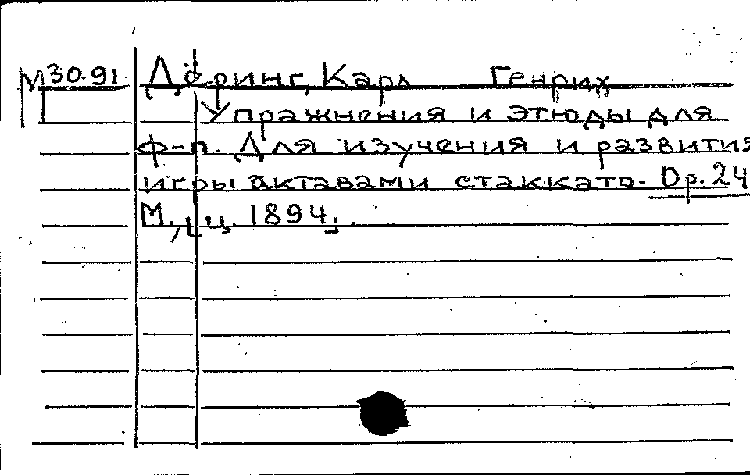 М 30.91 Дёринг, Карл Генрих
Упражнения и этюды для
ф-п. Для изучения и развития
игры октавами стаккато. Op. 24
М., ц. 1894.